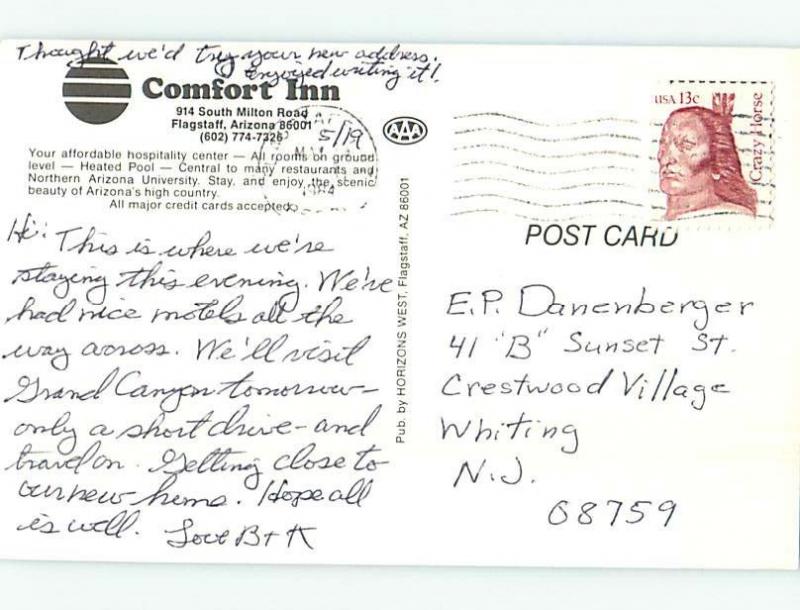 Thought we'd try your new address.
enjoyed writing it!
Comfort Inn
914 South Milton Road
Flagstaff, Arizona 86001
(602) 774-7326
5/19
1984
Your affordable hospitality center — All rooms on ground
level — Heated Pool — Central to many restaurants and
Northern Arizona University. Stay, and enjoy the scenic
beauty of Arizona's high country.
All major credit cards accepted.
Hi: This is where we're
staying this evening. We've
had nice motels all the
way across. We'll visit
Grand Canyon tomorrow -
only a short drive - and
travel on. Getting close to
our new home. Hope all
is well. Love B + K
AAA
Pub. by HORIZONS WEST, Flagstaff, AZ 86001
USA 13c
Crazy Horse
POST CARD
E.P. Danenberger
41 "B" Sunset St.
Crestwood Village
Whiting
N.J.
08759